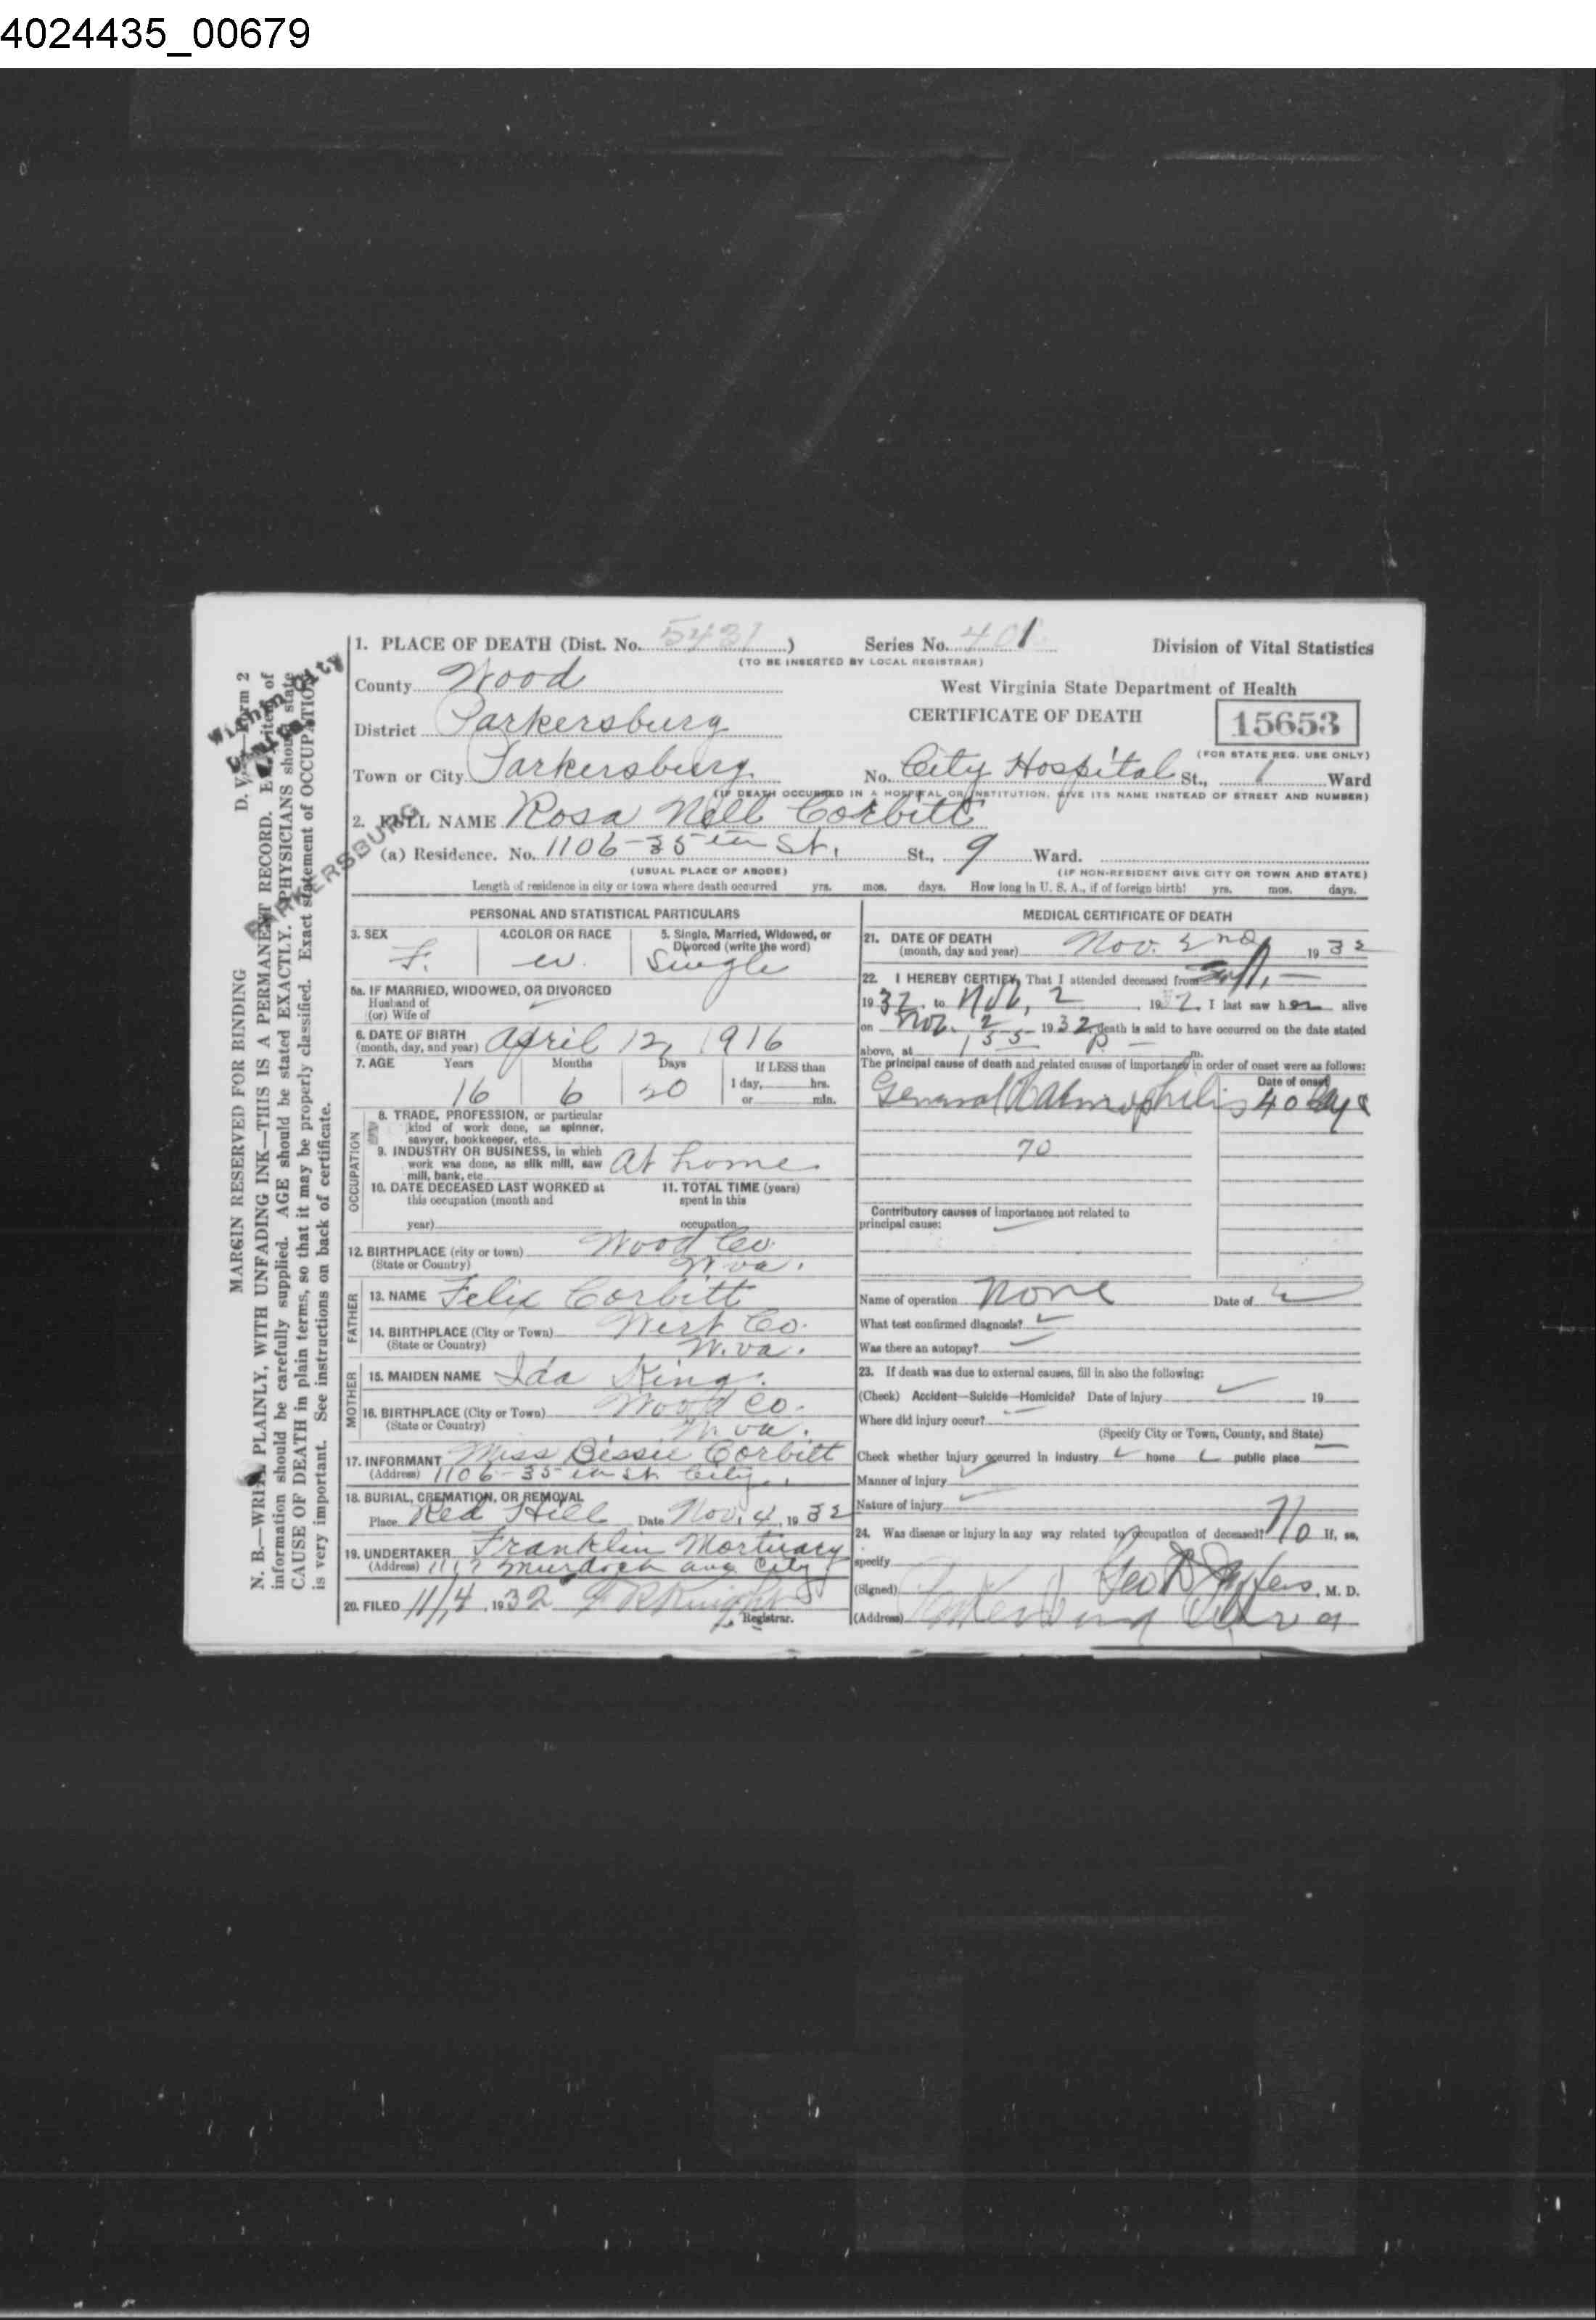 4024435_00679
MARGIN RESERVED FOR BINDING
N. B.—WRITE PLAINLY, WITH UNFADING INK—THIS IS A PERMANENT RECORD. Every item of
information should be carefully supplied. AGE should be stated EXACTLY. PHYSICIANS should state
CAUSE OF DEATH in plain terms, so that it may be properly classified. Exact statement of OCCUPATION
is very important. See instructions on back of certificate.
Within City
PARKERSBURG
1. PLACE OF DEATH (Dist. No. 5431) Series No. 401 Division of Vital Statistics
(TO BE INSERTED BY LOCAL REGISTRAR)
County Wood West Virginia State Department of Health
District Parkersburg CERTIFICATE OF DEATH 15653
(FOR STATE REG. USE ONLY)
Town or City Parkersburg No. City Hospital St., 1 Ward
(IF DEATH OCCURRED IN A HOSPITAL OR INSTITUTION, GIVE ITS NAME INSTEAD OF STREET AND NUMBER)
2. FULL NAME Rosa Nell Corbitt
(a) Residence. No. 1106-35th St. St., 9 Ward.
(USUAL PLACE OF ABODE) (IF NON-RESIDENT GIVE CITY OR TOWN AND STATE)
Length of residence in city or town where death occurred yrs. mos. days. How long in U. S. A., if of foreign birth? yrs. mos. days.
PERSONAL AND STATISTICAL PARTICULARS
3. SEX 4. COLOR OR RACE 5. Single, Married, Widowed, or
Divorced (write the word)
F. w. Single
5a. IF MARRIED, WIDOWED, OR DIVORCED
Husband of
(or) Wife of
6. DATE OF BIRTH
(month, day, and year) April 12, 1916
7. AGE Years Months Days If LESS than
1 day, hrs.
or min.
16 6 20
OCCUPATION
8. TRADE, PROFESSION, or particular
kind of work done, as spinner,
sawyer, bookkeeper, etc.
9. INDUSTRY OR BUSINESS, in which
work was done, as silk mill, saw
mill, bank, etc. At home
10. DATE DECEASED LAST WORKED at
this occupation (month and
year)
11. TOTAL TIME (years)
spent in this
occupation
12. BIRTHPLACE (city or town) Wood Co.
(State or Country) W.va.
FATHER
13. NAME Felix Corbitt
14. BIRTHPLACE (City or Town) Wirt Co.
(State or Country) W.va.
MOTHER
15. MAIDEN NAME Ida King.
16. BIRTHPLACE (City or Town) Wood Co.
(State or Country) W.va.
17. INFORMANT Miss Bessie Corbitt
(Address) 1106-35th St. City.
18. BURIAL, CREMATION, OR REMOVAL
Place Red Hill Date Nov. 4, 1932
19. UNDERTAKER Franklin Mortuary
(Address) Murdoch ave City
20. FILED 11/4, 1932 Knight
Registrar.
MEDICAL CERTIFICATE OF DEATH
21. DATE OF DEATH
(month, day and year) Nov. 2nd 1932
22. I HEREBY CERTIFY, That I attended deceased from
1932, to Nov. 2, 1932. I last saw her alive
on Nov. 2 1932, death is said to have occurred on the date stated
above, at 155 P m.
The principal cause of death and related causes of importance in order of onset were as follows:
Date of onset
General 40 days
70
Contributory causes of importance not related to
principal cause:
Name of operation None Date of
What test confirmed diagnosis?
Was there an autopsy?
23. If death was due to external causes, fill in also the following:
(Check) Accident—Suicide—Homicide? Date of injury 19
Where did injury occur?
(Specify City or Town, County, and State)
Check whether injury occurred in industry home public place
Manner of injury
Nature of injury
24. Was disease or injury in any way related to occupation of deceased? No If, so,
specify
(Signed) Geo D Jeffers, M. D.
(Address) Parkersburg W Va